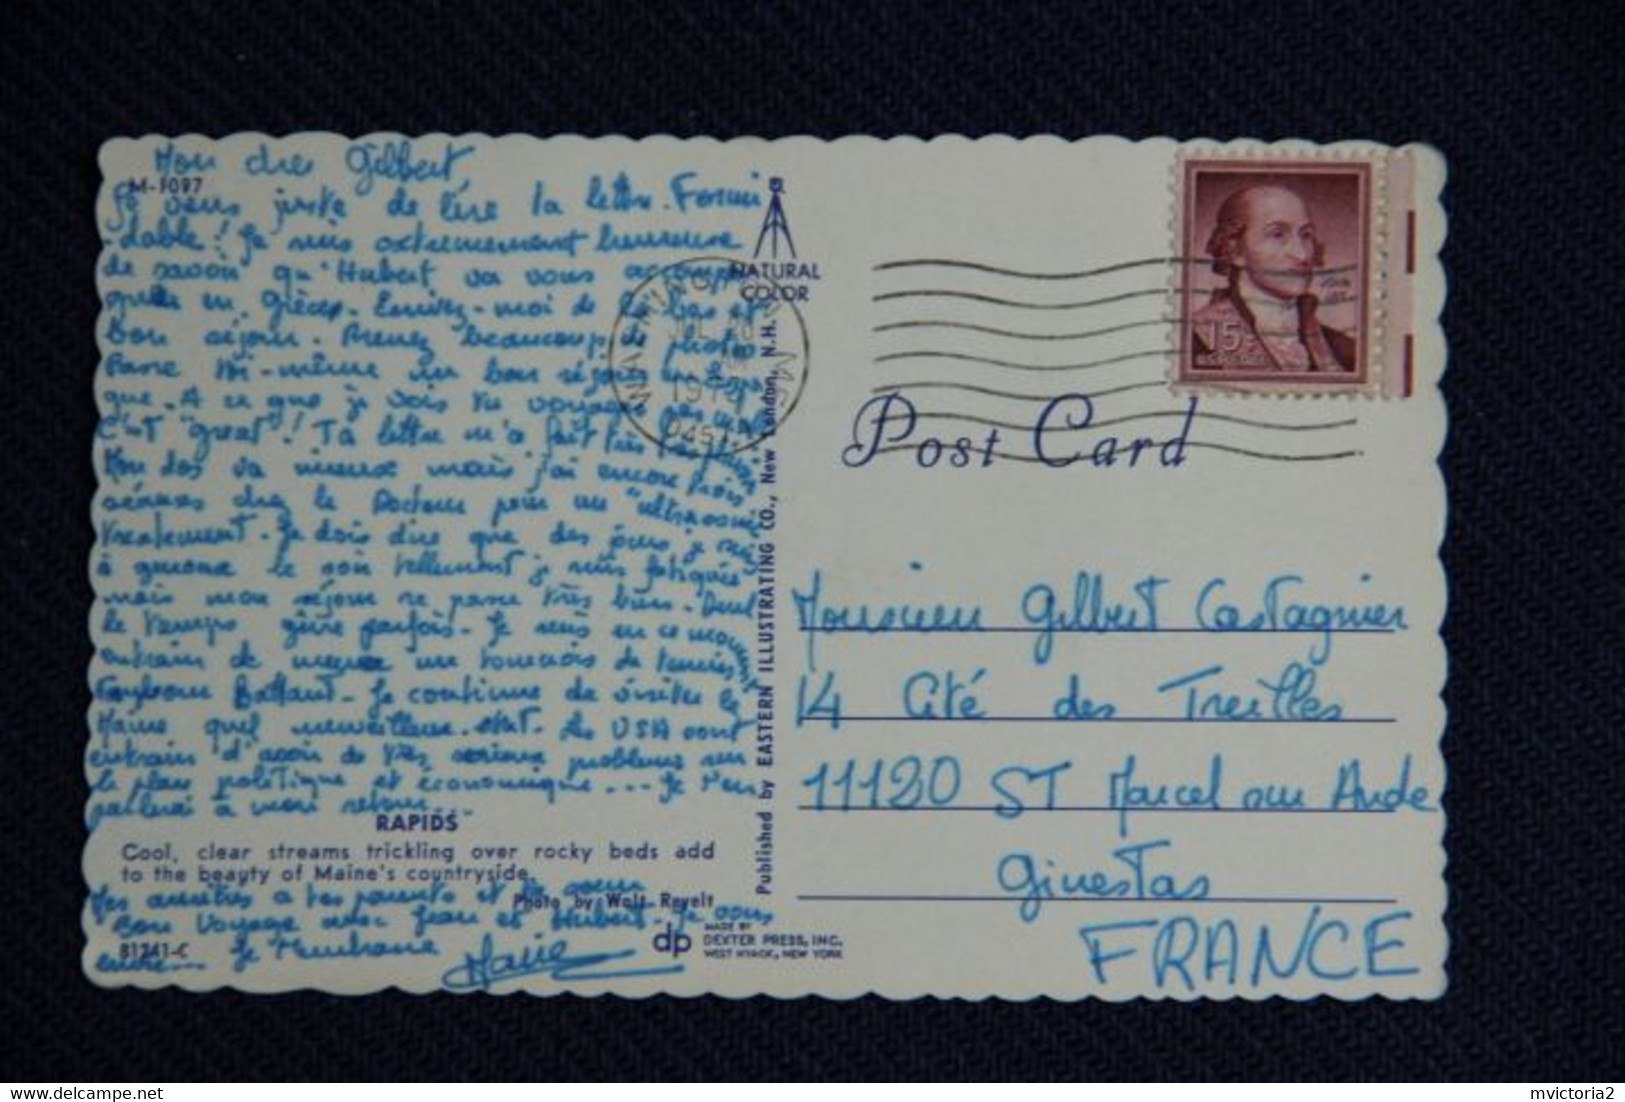 Mon cher Gilbert,
M-1097
Je viens juste de lire ta lettre. Formi
dable! Je suis extrêmement heureuse
de savoir qu'Hubert va vous accompa
gner en Grèce. Ecrivez-moi de là bas et
bon séjour. Prenez beaucoup de photos
Passe toi-même un bon séjour
que. A ce que je vois tu voyages pas mal
C'est "great"! Ta lettre m'a fait très plaisir
Mon dos va mieux mais j'ai encore trois
séances chez le Docteur pour un "ultrasonic
treatment. Je dois dire que des jours je suis
à genoux le soir tellement je suis fatiguée
mais mon séjour se passe très bien. Seul
le temps gêne parfois. Je suis en ce moment
entrain de un tournois de tennis
Battant. Je continue de visiter le
Maine quel merveilleux état. Les USA sont
entrain d'avoir de très serieux problèmes sur
le plan politique et économique... Je t'en
parlerai à mon retour.
RAPIDS
Cool, clear streams trickling over rocky beds add
to the beauty of Maine's countryside.
Photo by Walt Revelt
Mes amitiés à tes parents et ta soeur
Bon voyage avec Jean et Hubert. Je vous
81241-C
NATURAL
COLOR
Published by EASTERN ILLUSTRATING CO., New London, N.H.
dp MADE BY
DEXTER PRESS, INC.
WEST NYACK, NEW YORK
15¢
Post Card
Monsieur Gilbert Castagnier
14 Cité des Treilles
11120 ST Marcel sur Aude
Ginestas
FRANCE
mvictoria2